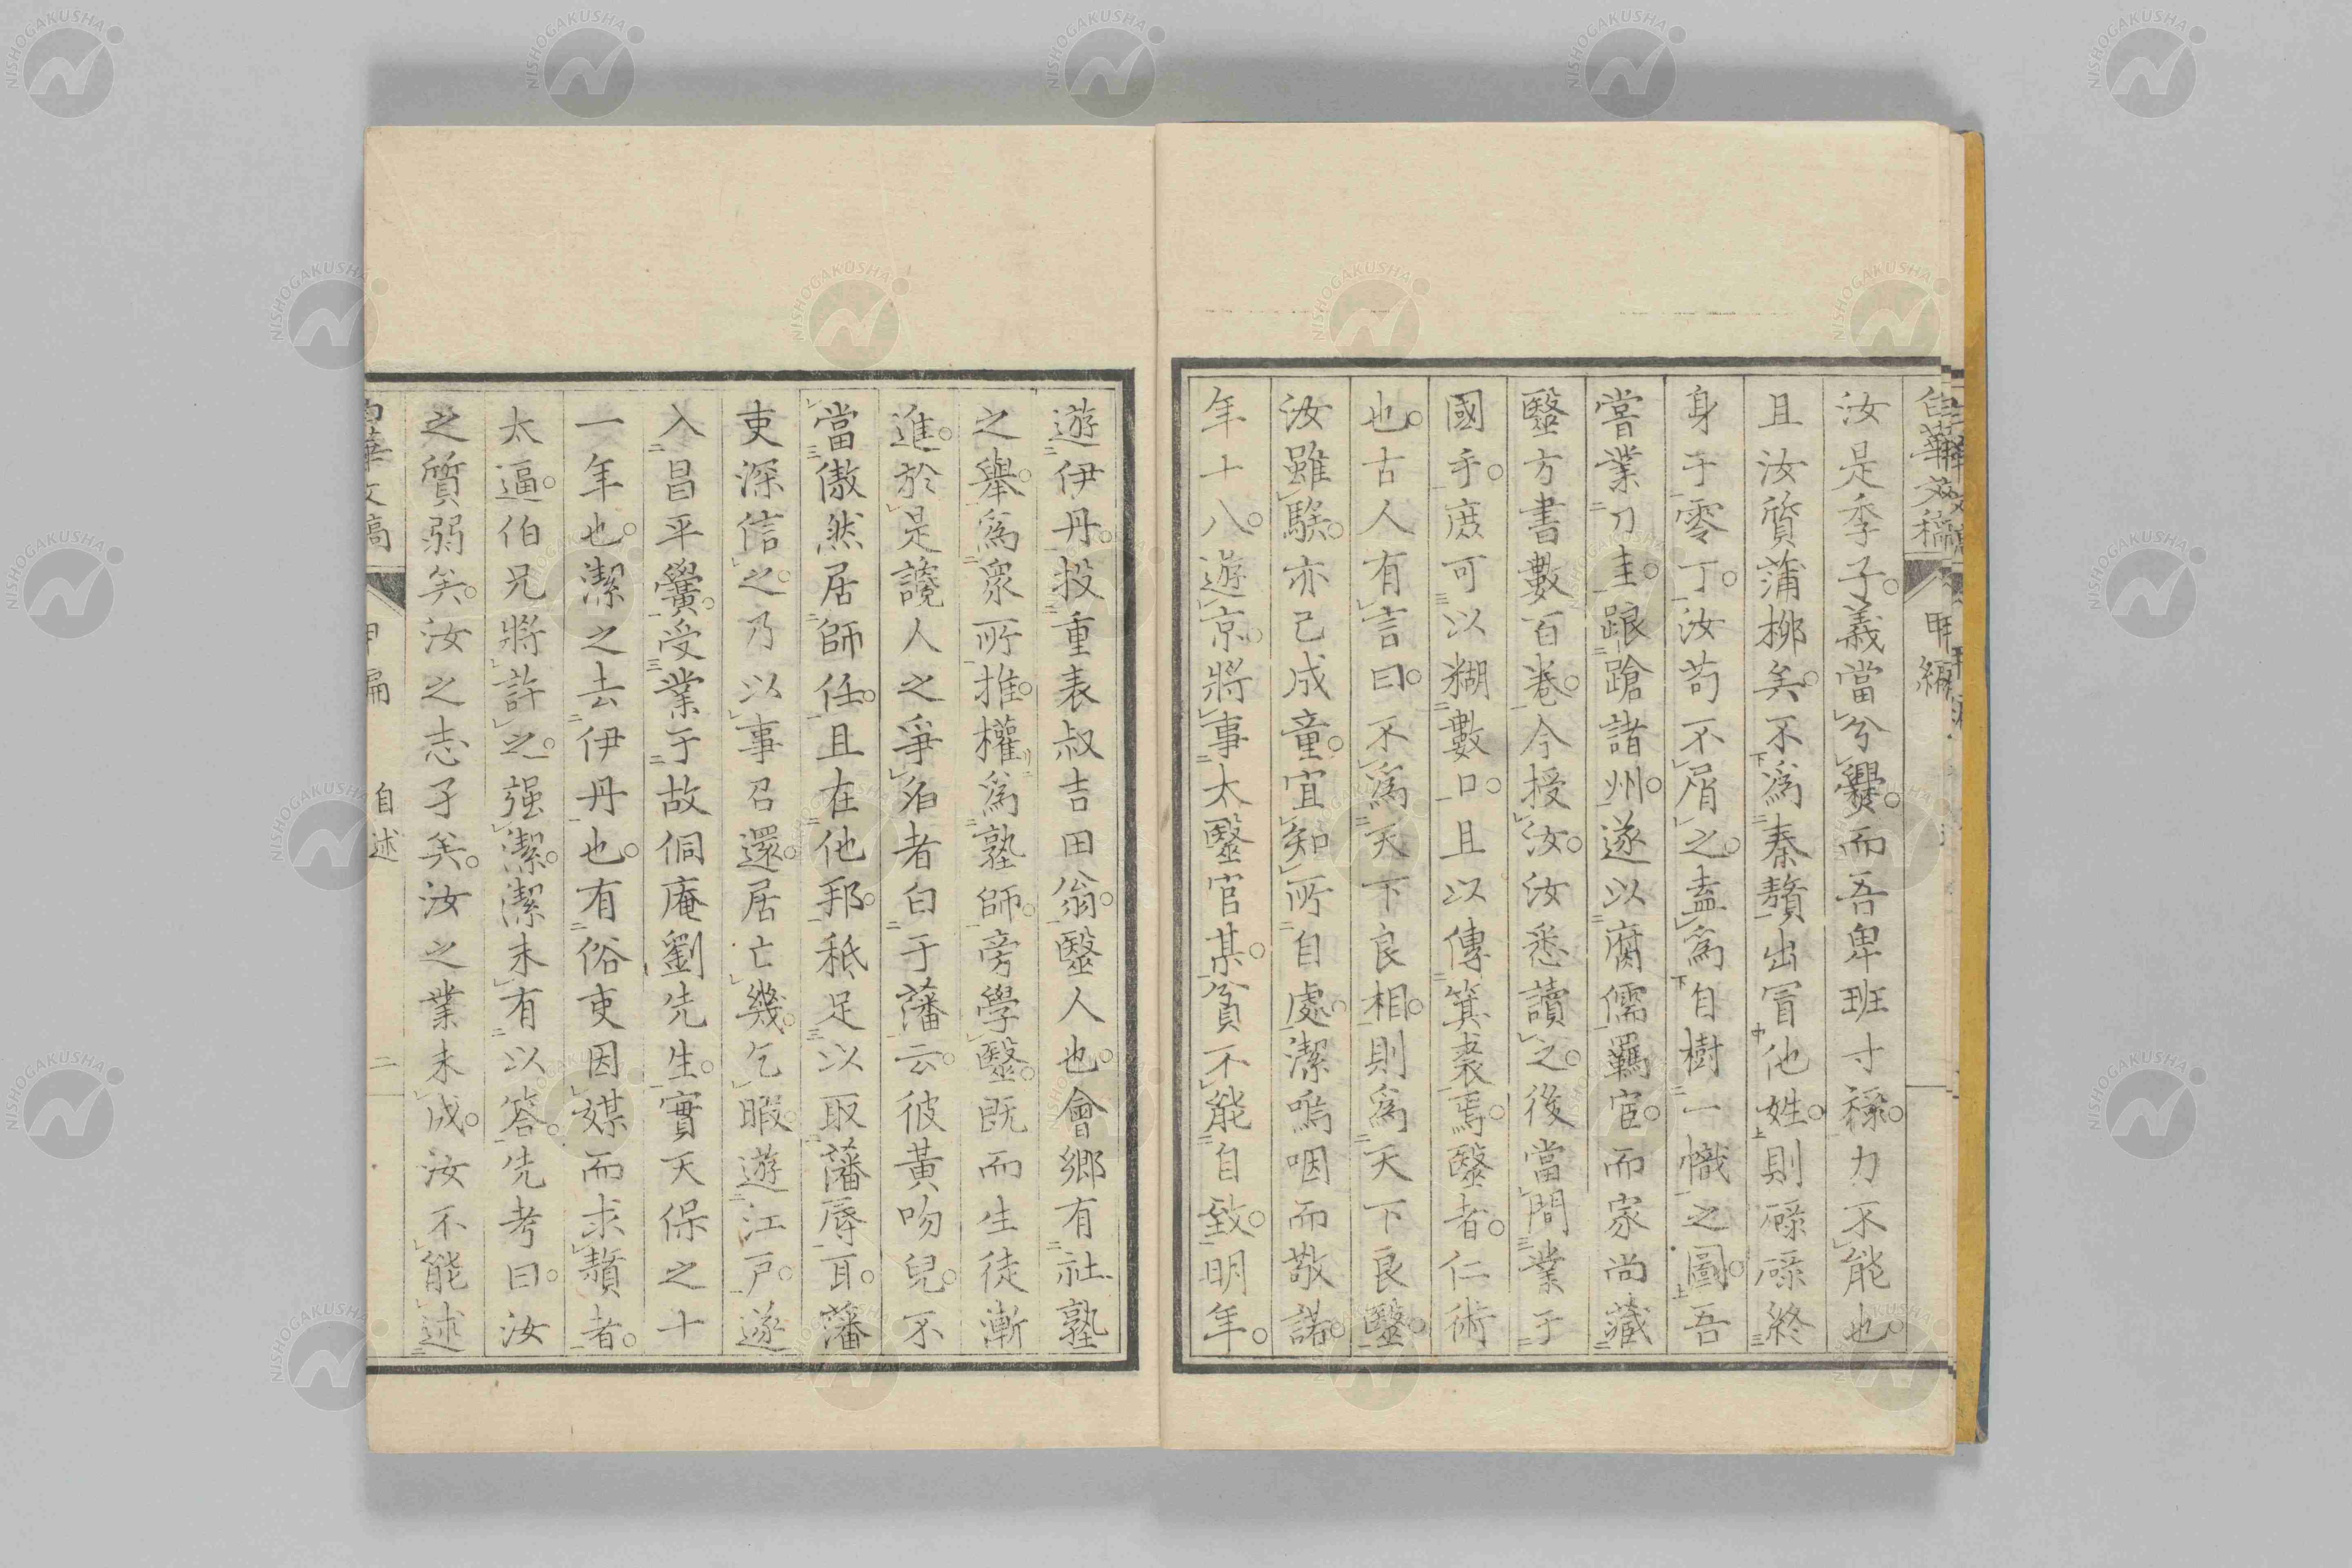 白華文稿 甲編
汝是季子。義當分爨。而吾卑班寸祿。力不能也。
且汝質蒲柳矣。不爲秦贅出冒他姓。則碌碌終
身于零丁。汝苟不屑之。盍爲自樹一幟之圖。吾
嘗業刀圭。踉蹌諸州。遂以腐儒羈宦。而家尚藏
毉方書數百卷。今授汝。汝悉讀之。後當問業于
國手。庶可以糊數口。且以傳箕裘焉。毉者。仁術
也。古人有言曰。不爲天下良相。則爲天下良毉。
汝雖騃。亦已成童。宜知所自處。潔嗚咽而敬諾。
年十八。遊京。將事太毉官某。貧不能自致。明年。
遊伊丹。投重表叔吉田翁。毉人也。會鄉有社塾
之舉。爲衆所推。權爲塾師。旁學毉。既而生徒漸
進。於是讒人之爭名者白于藩云。彼黃吻兒。不
當傲然居師任。且在他邦。秪足以取藩辱耳。藩
吏深信之。乃以事召還。居亡幾。乞暇遊江戶。遂
入昌平黌。受業于故侗庵劉先生。實天保之十
一年也。潔之去伊丹也。有俗吏因媒而求贅者。
太逼。伯兄將許之。强潔。潔未有以答。先考曰。汝
之質弱矣。汝之志孑矣。汝之業未成。汝不能述
白華文稿 甲編 自述 二
NISHOGAKUSHA